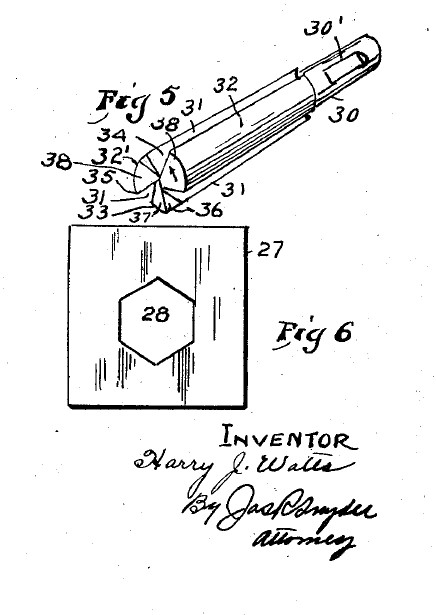 30'
Fig 5
31
32
34
38
30
32'
38
35
31
31
33
37
36
27
28
Fig 6
INVENTOR
Harry J. Watts
By Jas R Snyder
Attorney